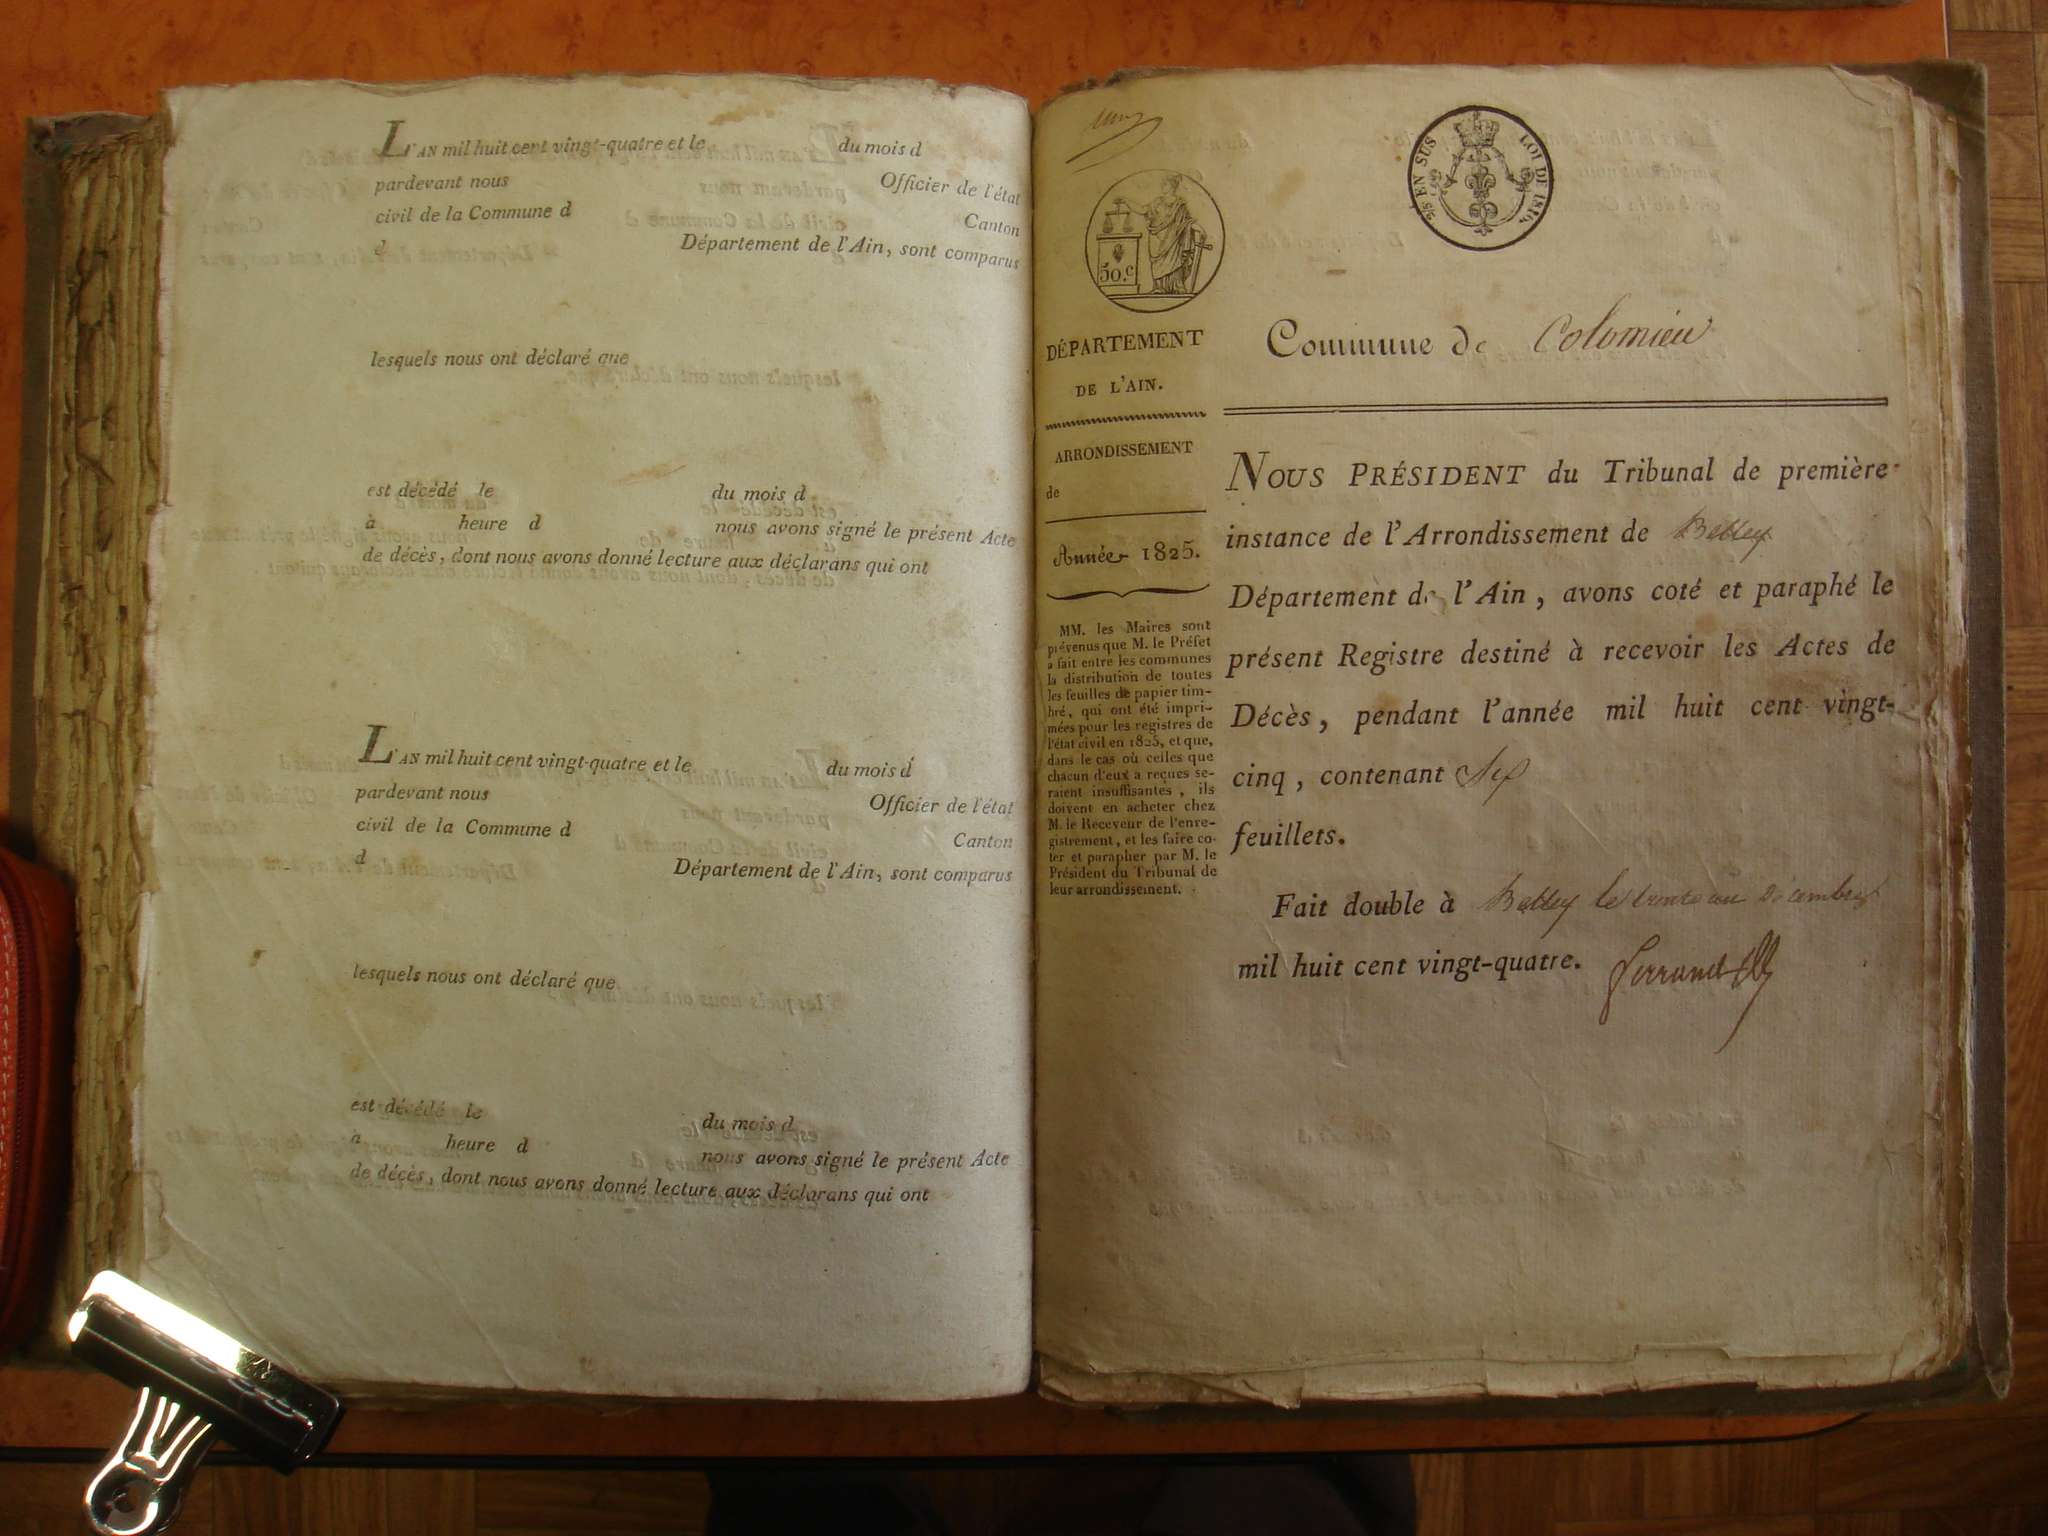 L'AN mil huit cent vingt-quatre et le du mois d
pardevant nous Officier de l'état
civil de la Commune d Canton
d Département de l'Ain, sont comparus
lesquels nous ont déclaré que
est décédé le du mois d
à heure d nous avons signé le présent Acte
de décès, dont nous avons donné lecture aux déclarans qui ont
L'AN mil huit cent vingt-quatre et le du mois d
pardevant nous Officier de l'état
civil de la Commune d Canton
d Département de l'Ain, sont comparus
lesquels nous ont déclaré que
est décédé le du mois d
à heure d nous avons signé le présent Acte
de décès, dont nous avons donné lecture aux déclarans qui ont
EN SUS LOI DE 1816
50.c
DÉPARTEMENT
DE L'AIN.
ARRONDISSEMENT
de
Année 1825.
MM. les Maires sont
prévenus que M. le Préfet
a fait entre les communes
la distribution de toutes
les feuilles de papier tim-
bré, qui ont été impri-
mées pour les registres de
l'état civil en 1825, et que,
dans le cas où celles que
chacun d'eux a reçues se-
raient insuffisantes, ils
doivent en acheter chez
M. le Receveur de l'enre-
gistrement, et les faire co-
ter et parapher par M. le
Président du Tribunal de
leur arrondissement.
Commune de Colomieu
NOUS PRÉSIDENT du Tribunal de première
instance de l'Arrondissement de Belley
Département de l'Ain, avons coté et paraphé le
présent Registre destiné à recevoir les Actes de
Décès, pendant l'année mil huit cent vingt-
cinq, contenant Six
feuillets.
Fait double à Belley le trente un Décembre
mil huit cent vingt-quatre.